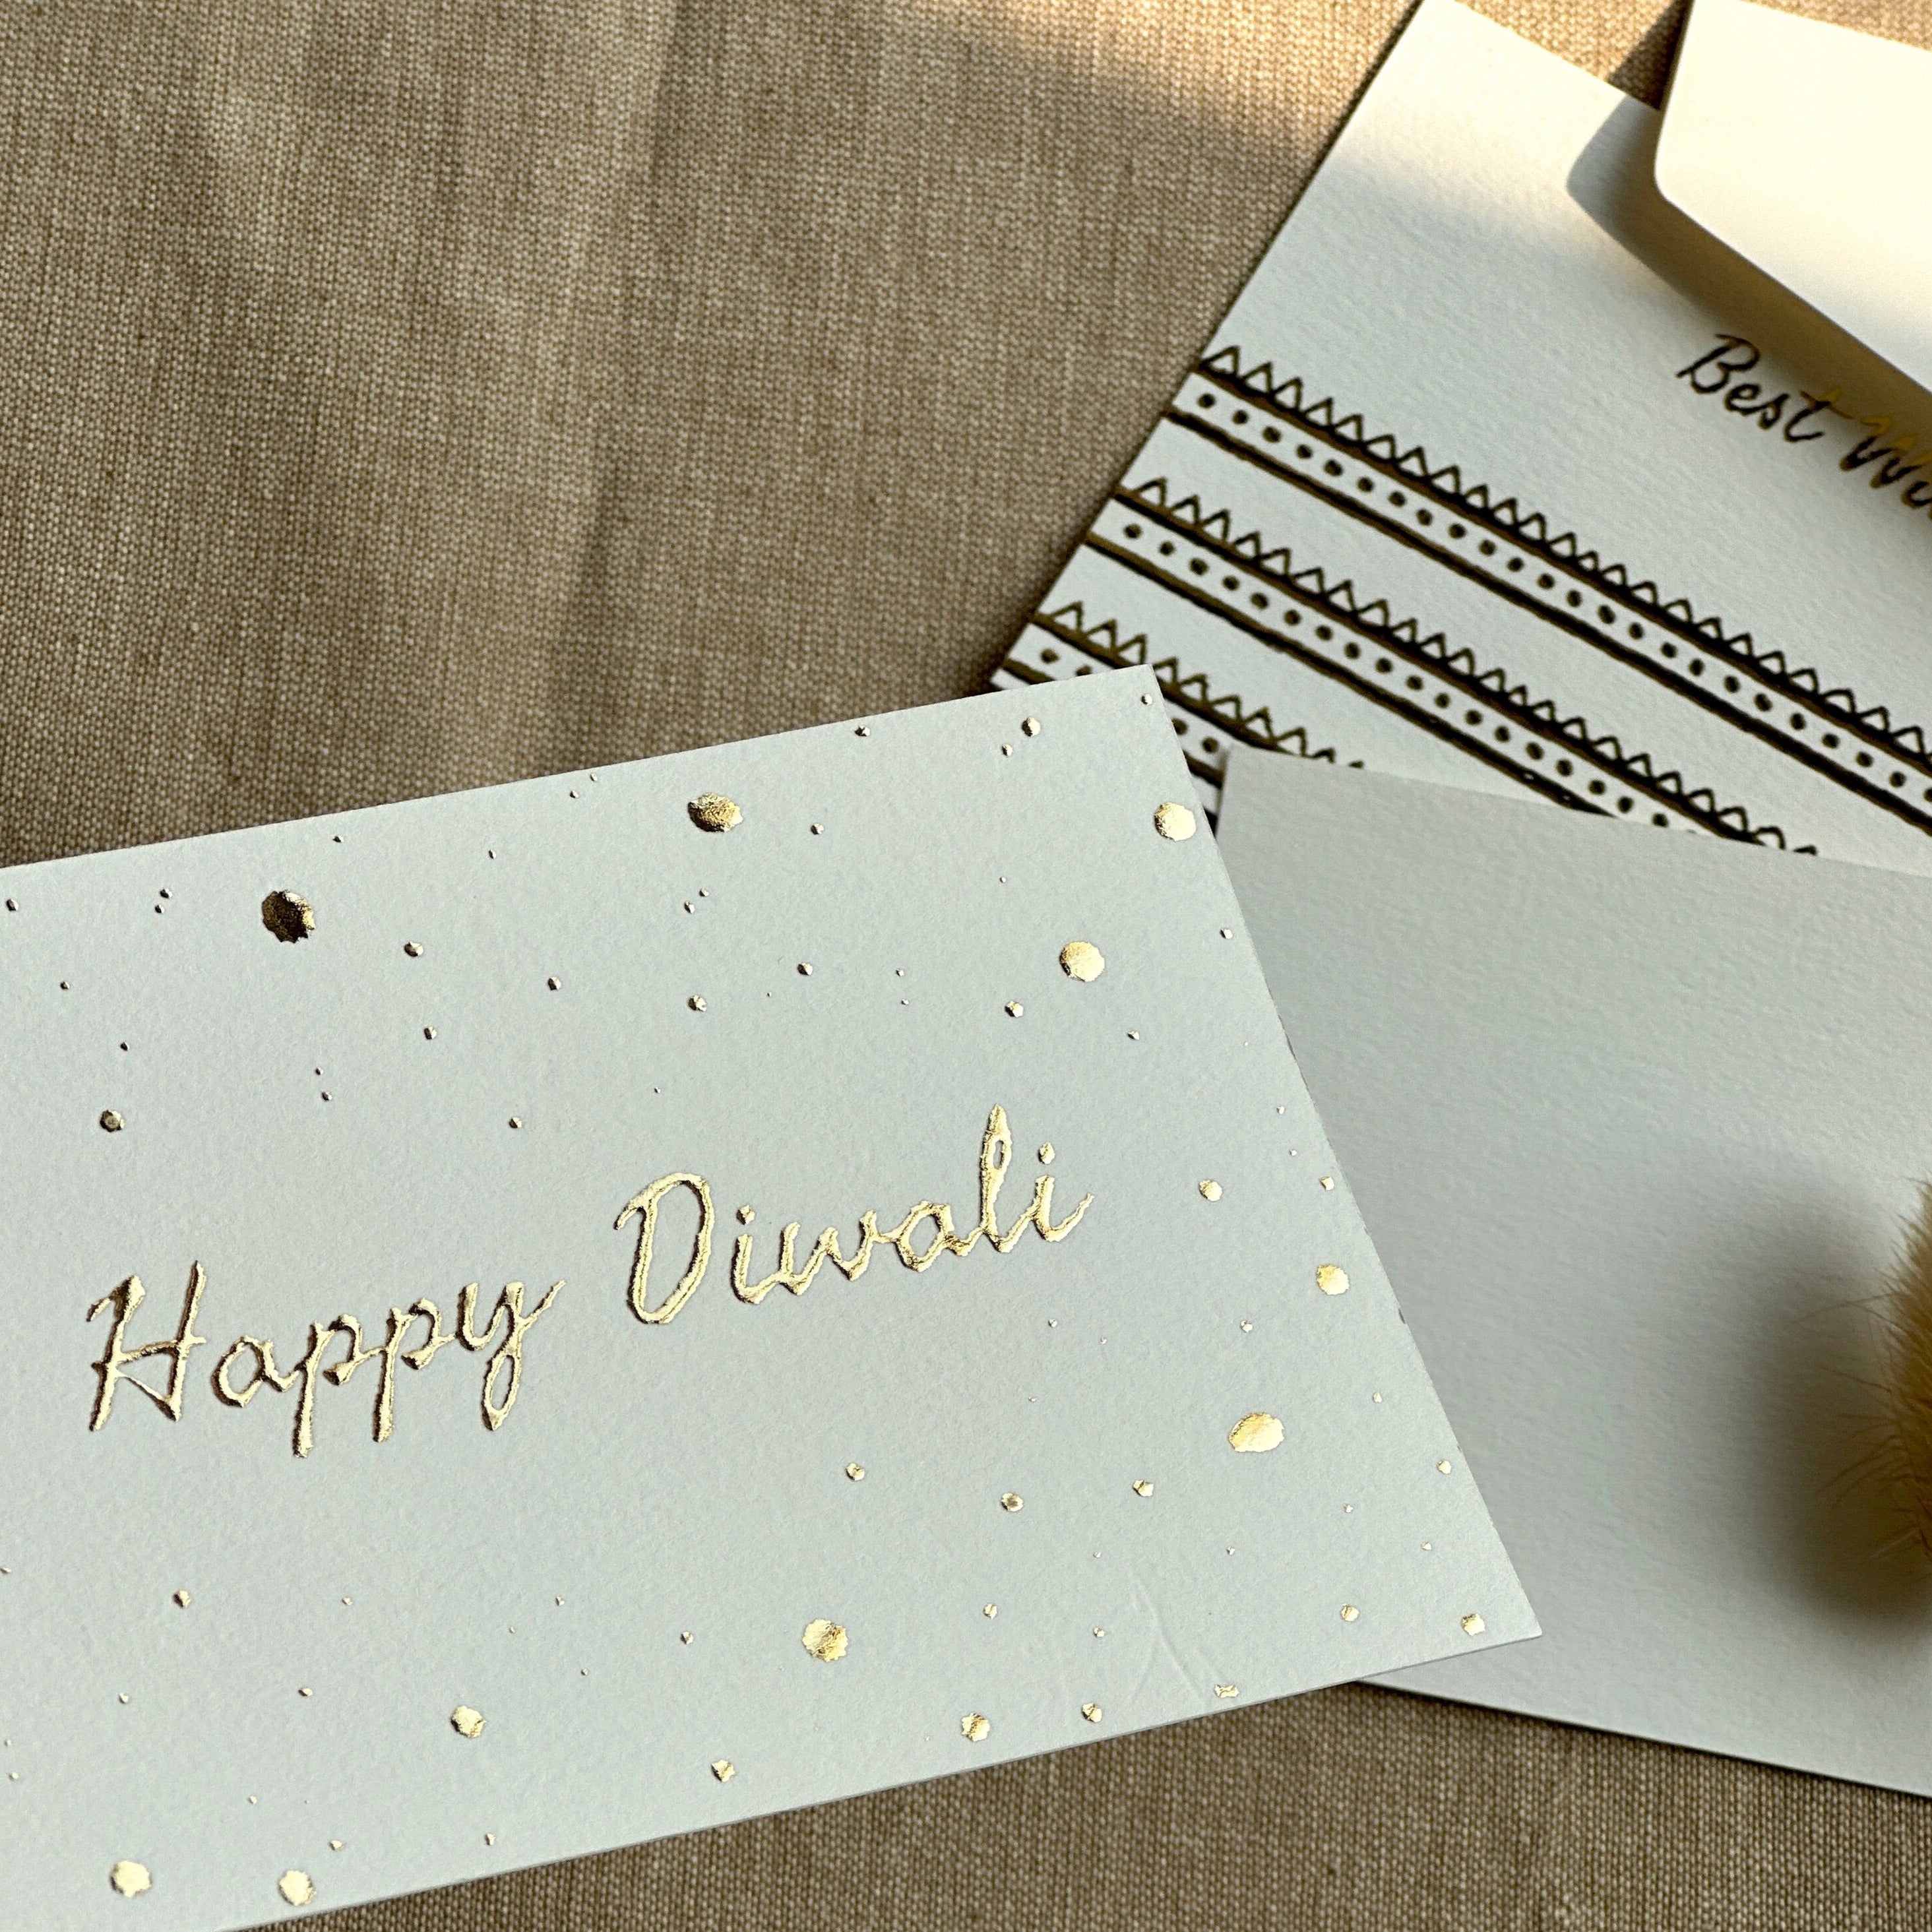 Best
Happy Diwali